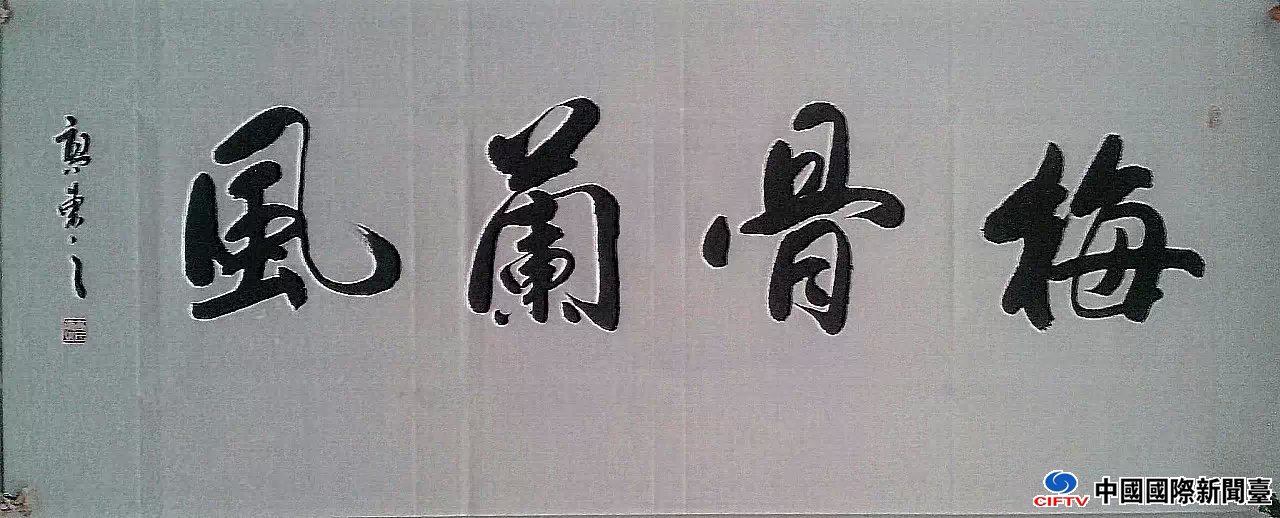 梅骨蘭風
CIFTV 中國國際新聞臺